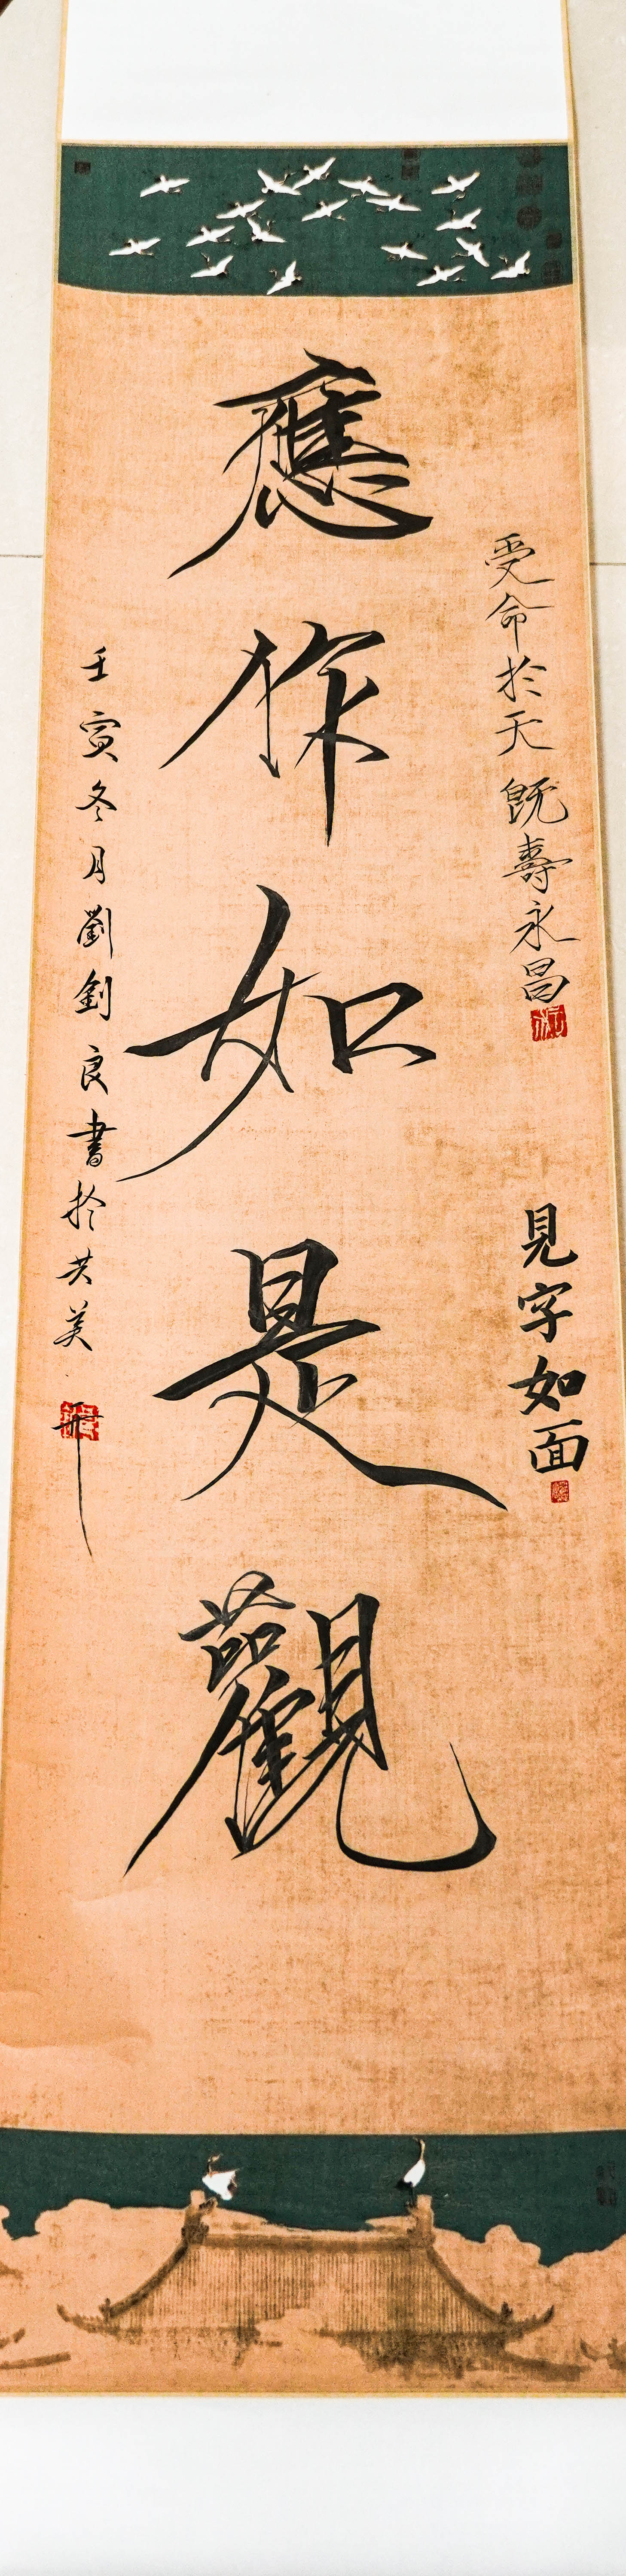 受命於天既壽永昌
見字如面
應作如是觀
壬寅冬月劉釗良書於共美